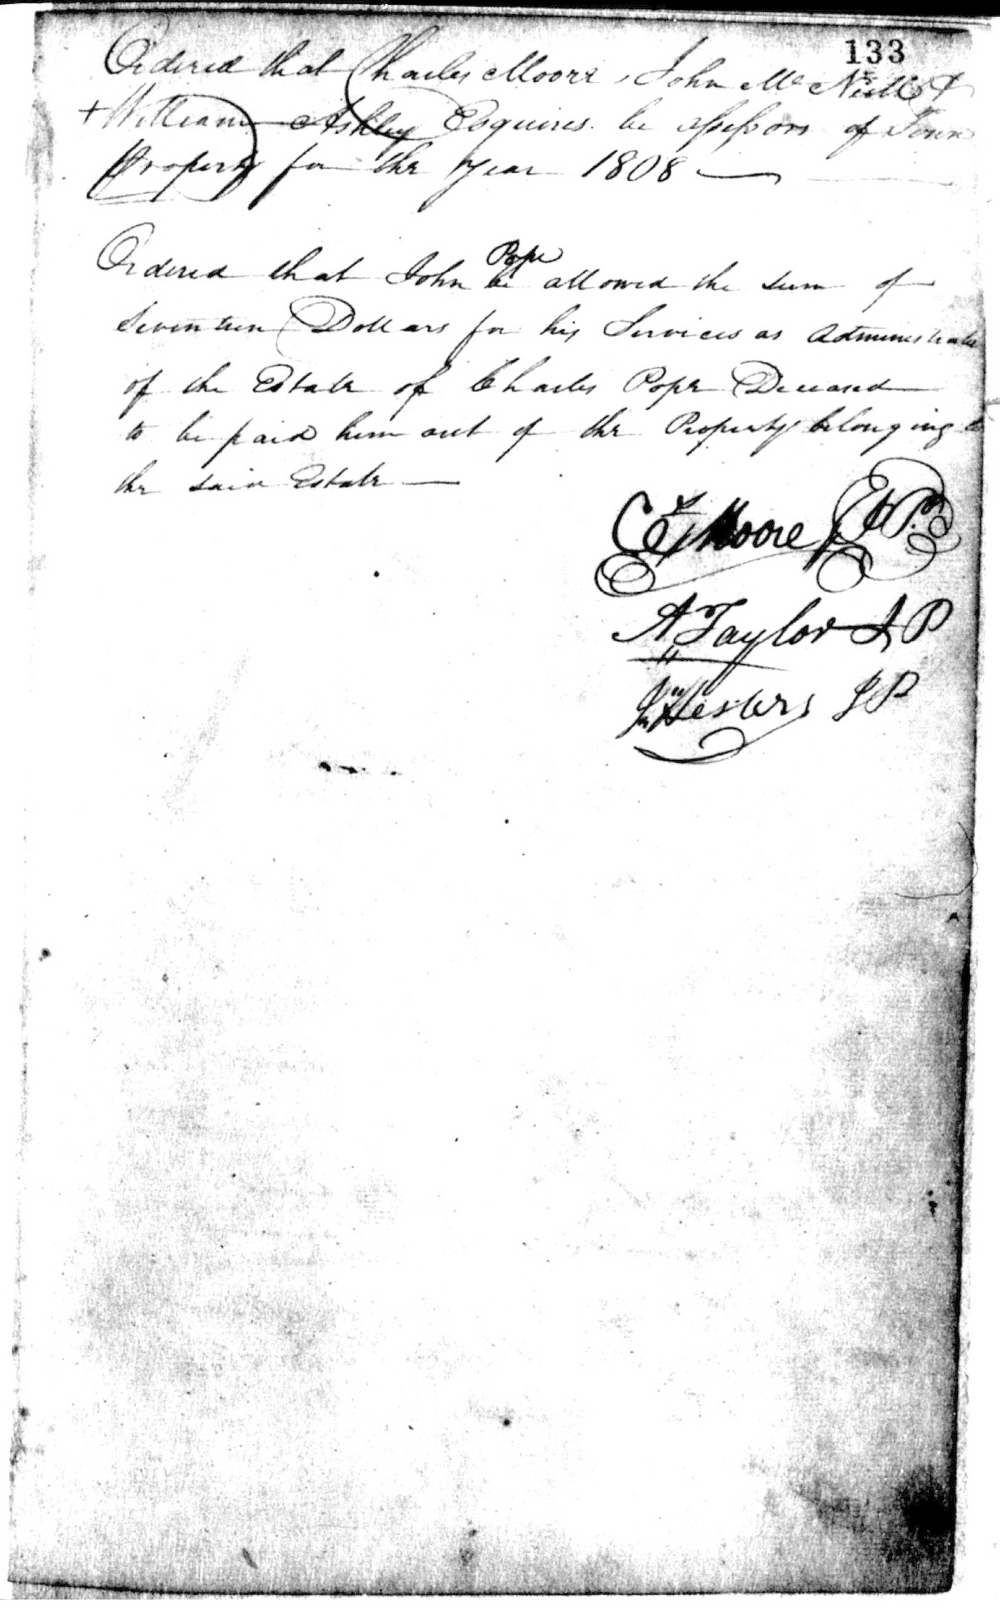 133
Ordered that Charles Moore, John Mc Neill &
+ William Ashley Esquires. be assessors of Town
Property for the year 1808
Ordered that John Pope be allowed the sum of
Seventeen Dollars for his Services as Administrator
of the Estate of Charles Pope Deceased
to be paid him out of the Property belonging to
the said Estate
Moore J.P.
A Taylor J P
J P